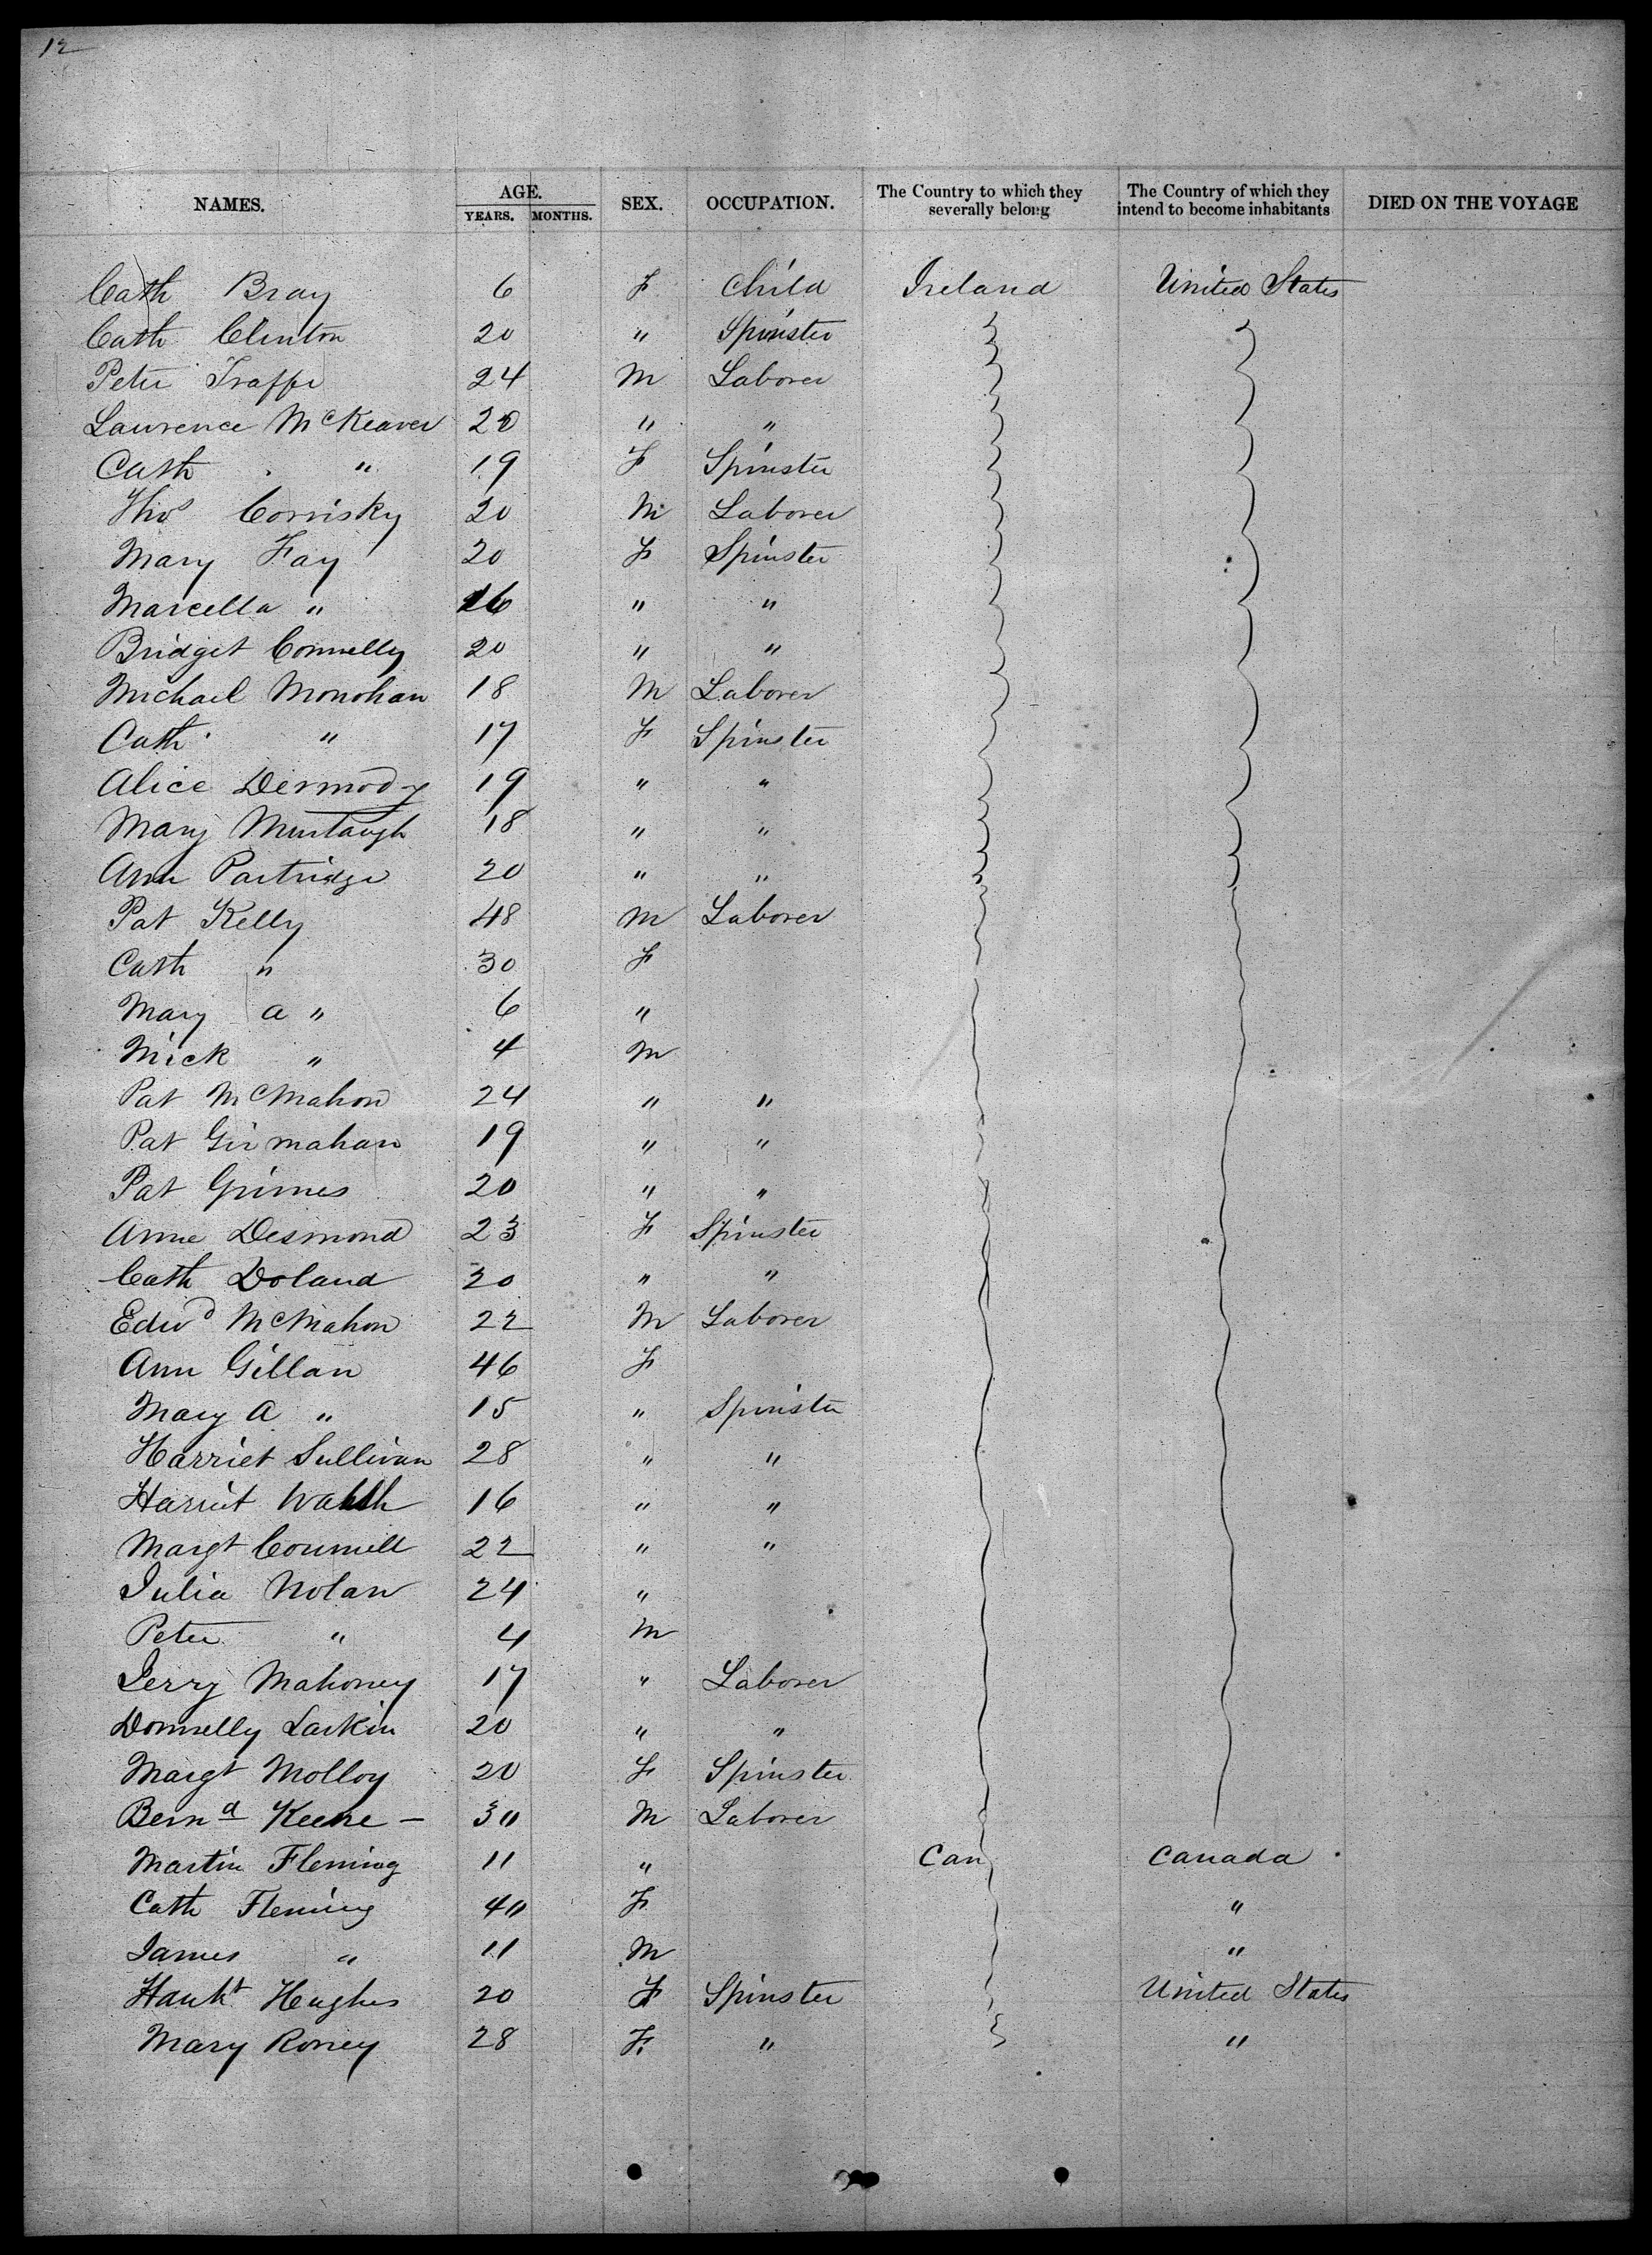 12
NAMES. AGE. YEARS. MONTHS. SEX. OCCUPATION. The Country to which they severally belong The Country of which they intend to become inhabitants DIED ON THE VOYAGE
Cath Bray 6 F Child Ireland United States
Cath Clinton 20 " Spinster
Peter Traffe 24 M Laborer
Lawrence McKeaver 20 " "
Cath " 19 F Spinster
Thos Corrisky 20 M Laborer
Mary Fay 20 F Spinster
Marcella " 16 " "
Bridget Connelly 20 " "
Michael Monohan 18 M Laborer
Cath " 17 F Spinster
Alice Dermody 19 " "
Mary Murtaugh 18 " "
Ann Partridge 20 " "
Pat Kelly 48 M Laborer
Cath " 30 F
Mary A " 6 "
Mick " 4 M
Pat McMahon 24 " "
Pat Girmahan 19 " "
Pat Grimes 20 " "
Anne Desmond 23 F Spinster
Cath Doland 20 " "
Edwd McMahon 22 M Laborer
Ann Gillan 46 F
Mary A " 15 " Spinster
Harriet Sullivan 28 " "
Harriet Walsh 16 " "
Margt Connell 22 " "
Julia Nolan 24 "
Peter " 4 M
Jerry Mahoney 17 " Laborer
Donnelly Larkin 20 " "
Margt Molloy 20 F Spinster
Bernd Keene - 30 M Laborer
Martin Fleming 11 " Can Canada
Cath Fleming 40 F "
James " 11 M "
Hughes 20 F Spinster United States
Mary Roney 28 F. " "